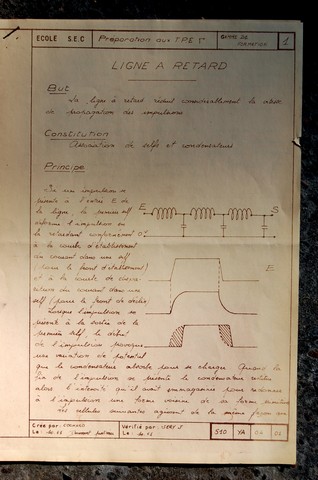 ECOLE S.E.C Préparation aux TPE 1 GAMME DE FORMATION 1
LIGNE A RETARD
But
La ligne à retard réduit considérablement la vitesse
de propagation des impulsions
Constitution
Association de selfs et condensateurs
Principe
Si une impulsion se
présente à l'entrée E de
la ligne, la première self
déforme l'impulsion en
la retardant conformément
à la courbe d'établissement
du courant dans une self
(pour le front d'établissement)
et à la courbe de
du courant dans une
self (pour le front de
Lorsque l'impulsion se
présente à la sortie de la
première self, le début
de l'impulsion provoque
une variation de potentiel
que le condensateur absorbe pour se charger. Quand la
fin de l'impulsion se présente le condensateur restitue
alors l'énergie qu'il avait emmagasinée pour redonner
à l'impulsion une forme voisine de sa forme
des cellules suivantes agissent de la même façon
E S
E
Créé par Vérifié par
Le Le
510 YA 04 01